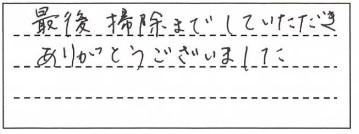 最後掃除までしていただき
ありがとうございました